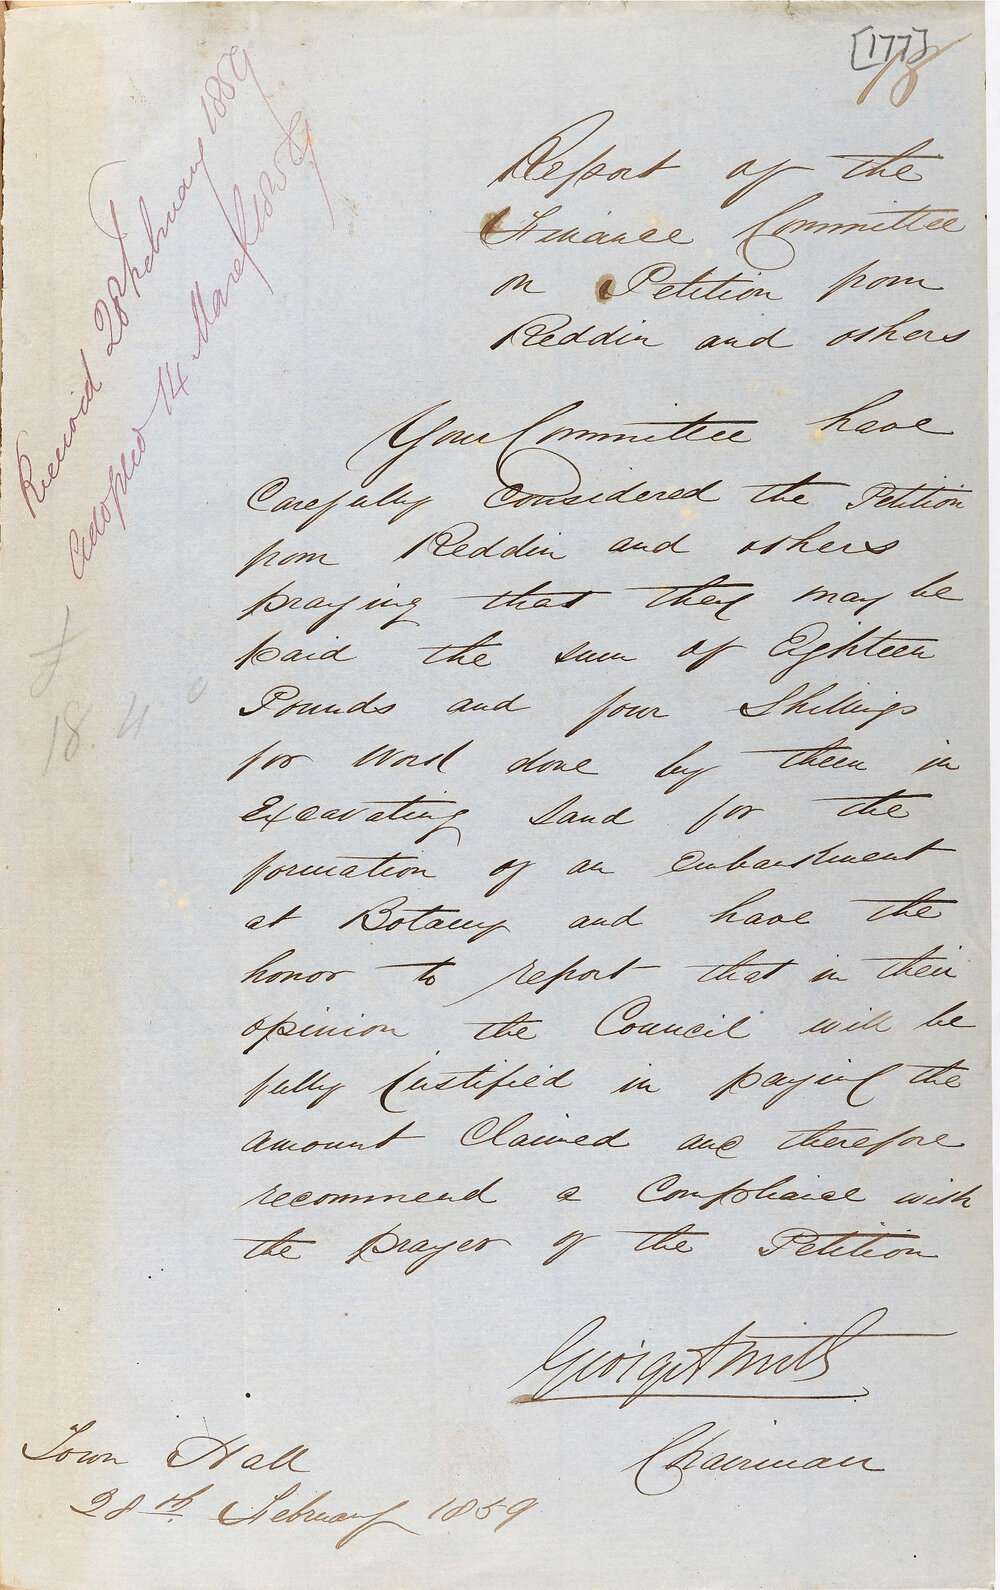 [177]
18
Received 28 February 1859
Adopted 14 March 1859
£
18. 4. 0
Report of the
Finance Committee
on Petition from
Reddin and others
Your Committee have
Carefully Considered the Petition
from Reddin and others
praying that they may be
paid the sum of Eighteen
Pounds and four Shillings
for Work done by them in
Excavating Sand for the
formation of an Embankment
at Botany and have the
honor to report that in their
opinion the Council will be
fully justified in paying the
amount Claimed and therefore
recommend a Compliance with
the prayer of the Petition
George Smith
Chairman
Town Hall
28th February 1859